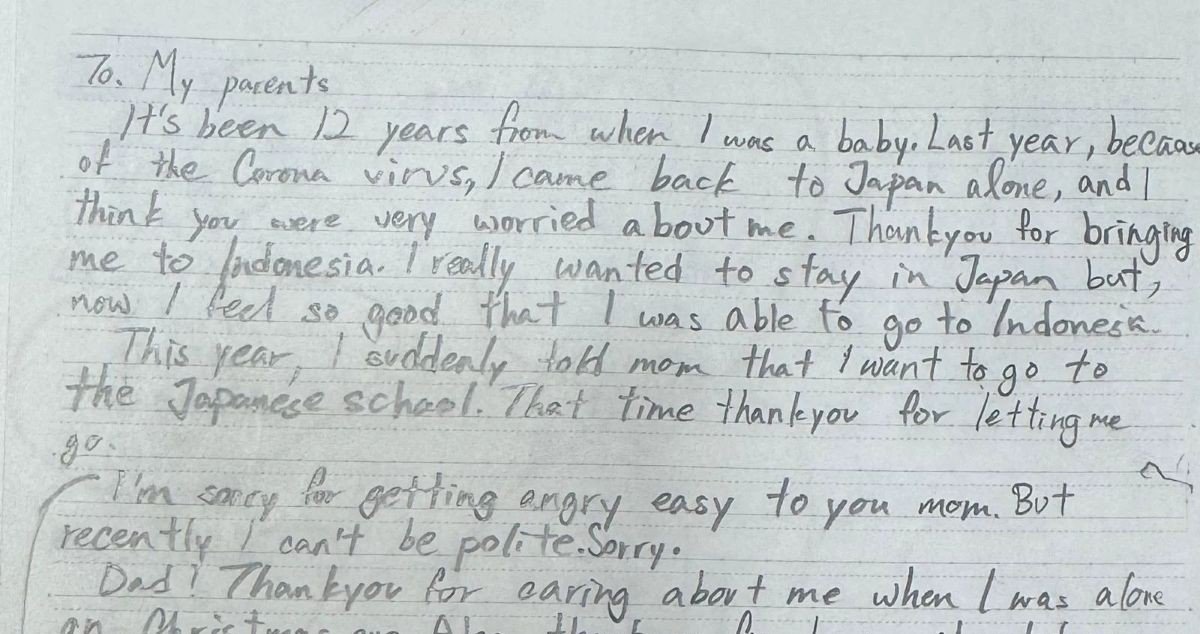 To. My parents
It's been 12 years from when I was a baby. Last year, because
of the Corona virus, I came back to Japan alone, and I
think you were very worried about me. Thankyou for bringing
me to Indonesia. I really wanted to stay in Japan but,
now I feel so good that I was able to go to Indonesia.
This year, I suddenly told mom that I want to go to
the Japanese school. That time thankyou for letting me
go.
I'm sorry for getting angry easy to you mom. But
recently I can't be polite. Sorry.
Dad! Thankyou for caring about me when I was alone
on Christmas eve. Also